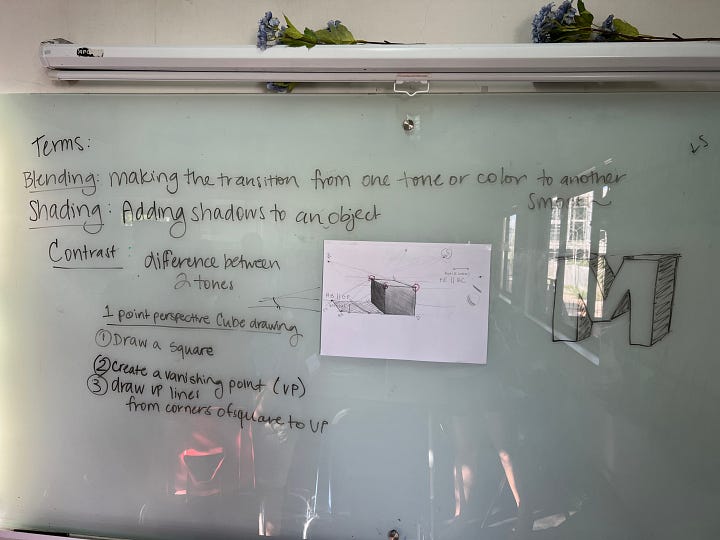 Terms:
Blending: making the transition from one tone or color to another
Shading: Adding shadows to an object
Contrast: difference between
2 tones
1 point perspective Cube drawing
① Draw a square
② Create a vanishing point (VP)
③ draw VP lines
from corners of square to VP
M